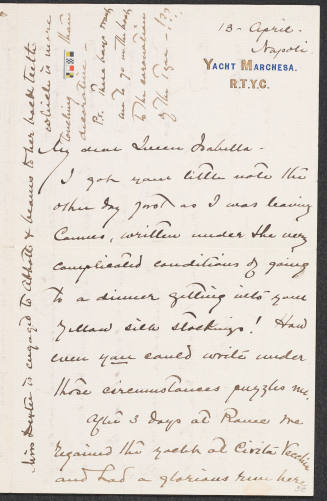 13 - April.
Napoli.
YACHT MARCHESA.
R.T.Y.C.
My dear Queen Isabella -
I got your little note the
other day just as I was leaving
Cannes, written under the very
complicated conditions of going
to a dinner & getting into your
yellow silk stockings! How
even you could write under
those circumstances puzzles me.
After 3 days at Rome we
regained the yacht at Civita Vecchia
and had a glorious run here
Miss Dexter is engaged to Abbott & beams to her back teeth
which is more
touching than
decorative -
Ps. These boys want
me to go in the boat
to the coronation
of the Tzar - !??